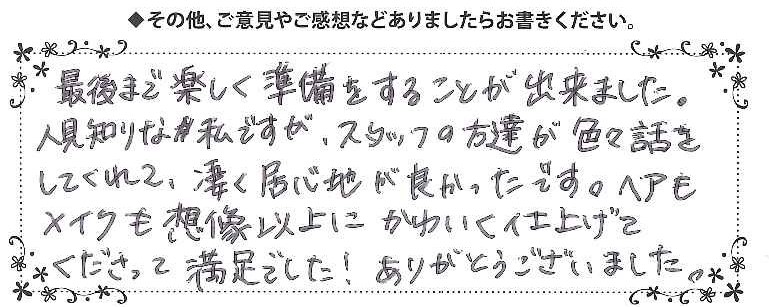 ◆その他、ご意見やご感想などありましたらお書きください。
最後まで楽しく準備をすることが出来ました。
人見知りな私ですが、スタッフの方達が色々話を
してくれて、凄く居心地が良かったです。ヘアも
メイクも想像以上にかわいく仕上げて
くださって満足でした！ありがとうございました。